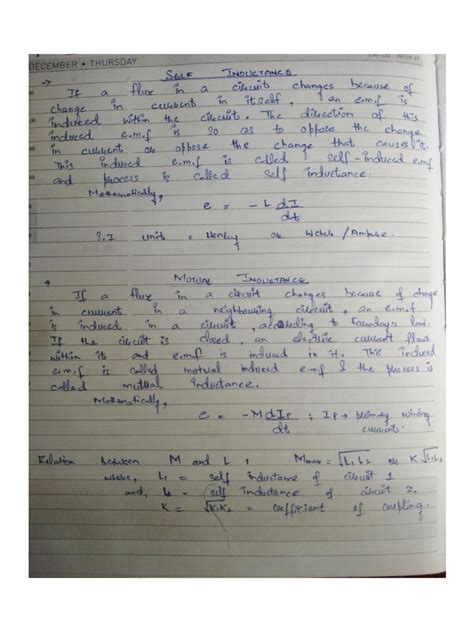 DECEMBER • THURSDAY
→ SELF INDUCTANCE
If a flux in a circuit changes because of
change in current in itself, an e.m.f is
induced within the circuit. The direction of this
induced e.m.f is so as to oppose the change
in current or oppose the change that causes it.
This induced e.m.f is called self-induced emf
and process is called self inductance.
Mathematically,
e = - L dI
dt
S.I unit = Henry or Weber / Ampere.
→ MUTUAL INDUCTANCE
If a flux in a circuit changes because of change
in current in a neighbouring circuit, an e.m.f
is induced in a circuit, according to Faraday's law.
If the circuit is closed, an electric current flows
within it and e.m.f is induced in it. This induced
e.m.f is called mutual induced e.m.f & the process is
called mutual inductance.
Mathematically,
e = -M dIP ; IP → primary winding
dt current.
Relation between M and L ; Mmax = √L1 L2 or K √L1L2
where, L1 = self inductance of circuit 1
and, L2 = self inductance of circuit 2.
K = √K1K2 = coefficient of coupling.